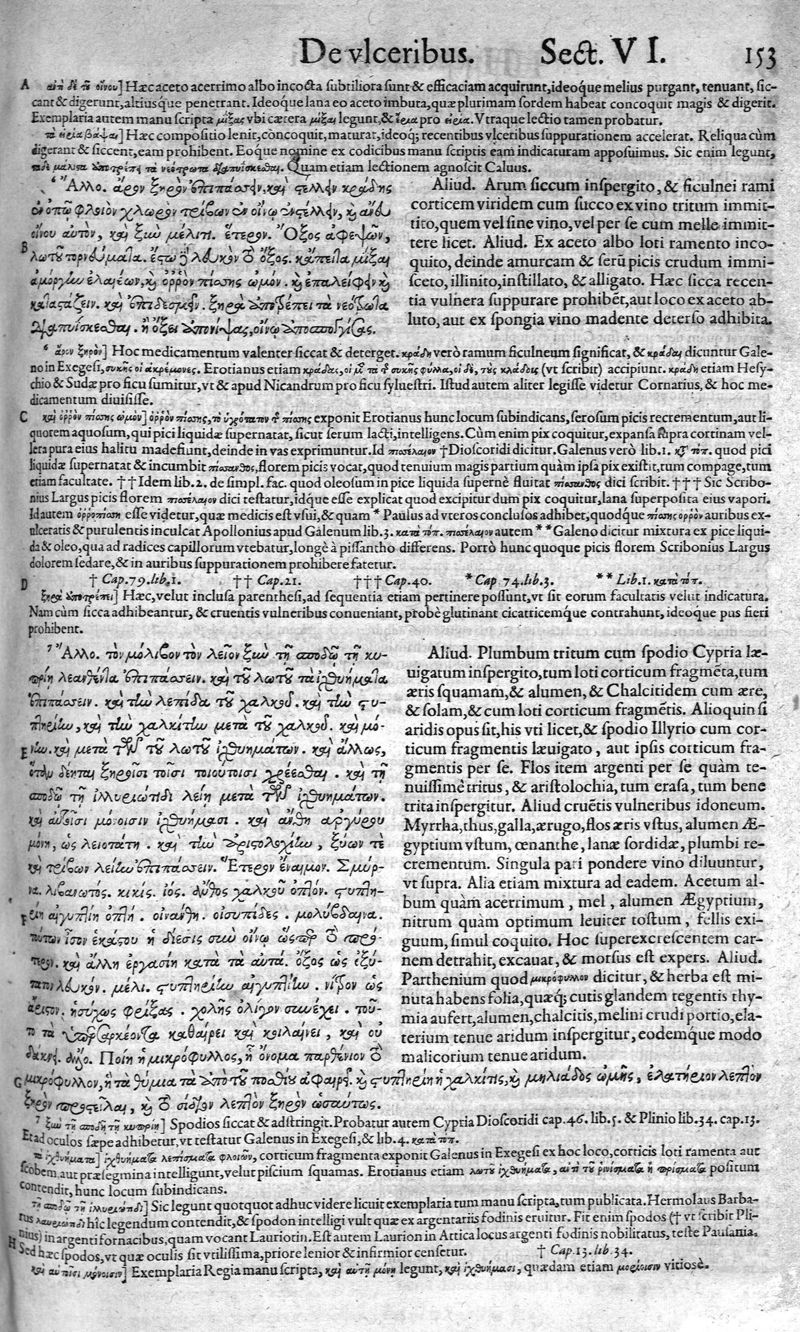 De vlceribus. Sect. VI. 153
A αντὶ δὲ τῶ οἴνου] Hæc aceto acerrimo albo incocta subtiliora sunt & efficaciam acquirunt, ideoque melius purgant, tenuant, sic-
cant & digerunt, altiusque penetrant. Ideoque lana eo aceto imbuta, quæ plurimam sordem habeat concoquit magis & digerit.
Exemplaria autem manu scripta μίξας vbi cætera μίξαι legunt, & pro εἴρια. Vtraque lectio tamen probatur.
Hæc compositio lenit, concoquit, maturat, ideoq; recentibus vlceribus suppurationem accelerat. Reliqua cùm
digerant & siccent, eam prohibent. Eoque nomine ex codicibus manu scriptis eam indicaturam apposuimus. Sic enim legunt,
Quam etiam lectionem agnoscit Caluus.
6 Ἄλλο. ἄρον ξηρὸν ἐπιπάσσειν, καὶ στέλλειν κράδης
φλοιὸν χλωρὸν τρίβων ἐν οἴνῳ ἐνστέλλειν, καὶ ἄνευ
οἴνου αὐτὸν, καὶ ξὺν μέλιτι. ἕτερον. Ὄξος ἀφεψῶν,
B
ἀμόργην ἐλαιέων, καὶ ὀρρὸν πίσσης ὠμὸν. καὶ ἐπαλείφειν καὶ
καταστάζειν. καὶ ἐπιδεσμεῖν. ξηρὰ ἀποτρέπει τὰ νεότρωτα
Aliud. Arum siccum inspergito, & ficulnei rami
corticem viridem cum succo ex vino tritum immit-
tito, quem vel sine vino, vel per se cum melle immit-
tere licet. Aliud. Ex aceto albo loti ramento inco-
quito, deinde amurcam & serũ picis crudum immi-
sceto, illinito, instillato, & alligato. Hæc sicca recen-
tia vulnera suppurare prohibẽt, aut loco ex aceto ab-
luto, aut ex spongia vino madente deterso adhibita.
6 ἄρον ξηρὸν] Hoc medicamentum valenter siccat & deterget. κράδη verò ramum ficulneum significat, & κράδαι dicuntur Gale-
no in Exegesi, συκῆς οἱ ἀκρέμονες. Erotianus etiam κράδας, (vt scribit) accipiunt. κράδη etiam Hesy-
chio & Sudæ pro ficu sumitur, vt & apud Nicandrum pro ficu syluestri. Istud autem aliter legisse videtur Cornarius, & hoc me-
dicamentum diuisisse.
C καὶ ὀρρὸν πίσσης ὠμὸν] exponit Erotianus hunc locum subindicans, serosum picis recrementum, aut li-
quorem aquosum, qui pici liquidæ supernatat, sicut serum lacti, intelligens. Cùm enim pix coquitur, expansa supra cortinam vel-
lera pura eius halitu madefiunt, deinde in vas exprimuntur. Id πισσέλαιον † Dioscoridi dicitur. Galenus verò lib.1. quod pici
liquidæ supernatat & incumbit πισσανθος, florem picis vocat, quod tenuium magis partium quàm ipsa pix existit, tum compage, tum
etiam facultate. †† Idem lib.2. de simpl. fac. quod oleosum in pice liquida supernè fluitat πισσανθος dici scribit. ††† Sic Scribo-
nius Largus picis florem πισσέλαιον dici testatur, idque esse explicat quod excipitur dum pix coquitur, lana superposita eius vapori.
Id autem ὀρρόπισσαν esse videtur, quæ medicis est vsui, & quam * Paulus ad vteros conclusos adhibet, quodque πίσσης ὀρρὸν auribus ex-
ulceratis & purulentis inculcat Apollonius apud Galenum lib.3. κατὰ τόπ. πισσέλαιον autem ** Galeno dicitur mixtura ex pice liqui-
da & oleo, qua ad radices capillorum vtebatur, longè à pissantho differens. Porrò hunc quoque picis florem Scribonius Largus
dolorem sedare, & in auribus suppurationem prohibere fatetur.
D † Cap.79.lib.1. †† Cap.21. ††† Cap.40. * Cap.74.lib.3. ** Lib.1. κατὰ τόπ.
ξηρὰ ἀποτρέπει] Hæc, velut inclusa parenthesi, ad sequentia etiam pertinere possunt, vt sit eorum facultatis velut indicatura.
Nam cùm sicca adhibeantur, & cruentis vulneribus conueniant, probè glutinant cicatricemque contrahunt, ideoque pus fieri
prohibent.
7 Ἄλλο. τὸν μόλιβδον τὸν λεῖον ξὺν τῇ σποδῷ τῇ κυ-
πρίῃ λεαθέντα ἐπιπάσσειν. καὶ τοῦ λωτοῦ τὰ ἰχθυήματα
ἐπιπάσσειν. καὶ τὴν λεπίδα τοῦ χαλκοῦ. καὶ τὴν στυ-
πτηρίην, καὶ τὴν χαλκῖτιν μετὰ τοῦ χαλκοῦ. καὶ μό-
E νην. καὶ μετὰ τῶν τοῦ λωτοῦ ἰχθυημάτων. καὶ ἄλλως,
ὅταν δέηται ξηροῖσι τοῖσι τοιούτοισι χρέεσθαι. καὶ τῇ
σποδῷ τῇ ἰλλυριώτιδι λείῃ μετὰ τῶν ἰχθυημάτων.
καὶ αὐτοῖσι μόνοισιν ἰχθυήμασι. καὶ ἄνθη ἀργύρου
μόνη, ὡς λειοτάτη. καὶ τὴν ἀριστολοχίην, ξύων τε
καὶ τρίβων λείην ἐπιπάσσειν. Ἕτερον ἔναιμον. Σμύρ-
να. λιβανωτὸς. κικὶς. ἰὸς. ἄνθος χαλκοῦ ὀπτὸν. στυπτη-
F ρίη αἰγυπτίη ὀπτή. οἰνάνθη. οἰσυπίδες. μολύβδαινα.
τουτέων ἴσον ἑκάστου ἡ δίεσις σὺν οἴνῳ ὥσπερ ὁ πρό-
τερος. καὶ ἄλλη ἐργασίη κατὰ τὰ αὐτά. ὄξος ὡς ὀξύ-
τατον λευκὸν. μέλι. στυπτηρίην αἰγυπτίην. νίτρον ὡς
ἄριστον. ἡσύχως φρίξας. χολῆς ὀλίγον συνέχει. τοῦ-
το τὰ ὑπερσαρκέοντα καθαίρει καὶ κοιλαίνει, καὶ οὐ
δάκνει. ἄλλο. Ποίη ἡ μικρόφυλλος, ἣ ὄνομα παρθένιον τὸ
G μικρόφυλλον, ἢ τὰ θύμια τὰ ἀπὸ τοῦ ποσθίου ἀφαιρεῖ. καὶ στυπτηρίη ἡ χαλκῖτις, καὶ μηλιάδος ὠμῆς, ἐλατήριον λεπτὸν
Aliud. Plumbum tritum cum spodio Cypria læ-
uigatum inspergito, tum loti corticum fragmẽta, tum
æris squamam, & alumen, & Chalcitidem cum ære,
& solam, & cum loti corticum fragmẽtis. Alioquin si
aridis opus sit, his vti licet, & spodio Illyrio cum cor-
ticum fragmentis læuigato, aut ipsis corticum fra-
gmentis per se. Flos item argenti per se quàm te-
nuissimè tritus, & aristolochia, tum erasa, tum bene
trita inspergitur. Aliud cruẽtis vulneribus idoneum.
Myrrha, thus, galla, ærugo, flos æris vstus, alumen Æ-
gyptium vstum, œnanthe, lanæ sordidæ, plumbi re-
crementum. Singula pari pondere vino diluuntur,
vt supra. Alia etiam mixtura ad eadem. Acetum al-
bum quàm acerrimum, mel, alumen Ægyptium,
nitrum quàm optimum leuiter tostum, fellis exi-
guum, simul coquito. Hoc superexcrescentem car-
nem detrahit, excauat, & morsus est expers. Aliud.
Parthenium quod μικρόφυλλον dicitur, & herba est mi-
nuta habens folia, quæq; cutis glandem tegentis thy-
mia aufert, alumen, chalcitis, melini crudi portio, ela-
terium tenue aridum inspergitur, eodemque modo
malicorium tenue aridum.
7 ξὺν τῇ σποδῇ τῇ κυπρίῃ] Spodios siccat & adstringit. Probatur autem Cypria Dioscoridi cap.46.lib.5. & Plinio lib.34.cap.13.
Et ad oculos sæpe adhibetur, vt testatur Galenus in Exegesi, & lib.4. κατὰ τόπ.
ἰχθυήματα] ἰχθυήματα, λεπίσματα φλοιῶν, corticum fragmenta exponit Galenus in Exegesi ex hoc loco, corticis loti ramenta aut
scobem, aut præsegmina intelligunt, velut piscium squamas. Erotianus etiam λωτοῦ ἰχθυήματα, positum
contendit, hunc locum subindicans.
τῇ σποδῷ τῇ ἰλλυριώτιδι] Sic legunt quotquot adhuc videre licuit exemplaria tum manu scripta, tum publicata. Hermolaus Barba-
rus hic legendum contendit, & spodon intelligi vult quæ ex argentariis fodinis eruitur. Fit enim spodos († vt scribit Pli-
nius) in argenti fornacibus, quam vocant Lauriotin. Est autem Laurion in Attica locus argenti fodinis nobilitatus, teste Pausania.
H Sed hæc spodos, vt quæ oculis sit vtilissima, priore lenior & infirmior censetur. † Cap.13.lib.34.
καὶ αὐτοῖσι μόνοισιν] Exemplaria Regia manu scripta, καὶ αὐτῇ μόνῃ legunt, καὶ ἰχθυήμασι, quædam etiam vitiosè.